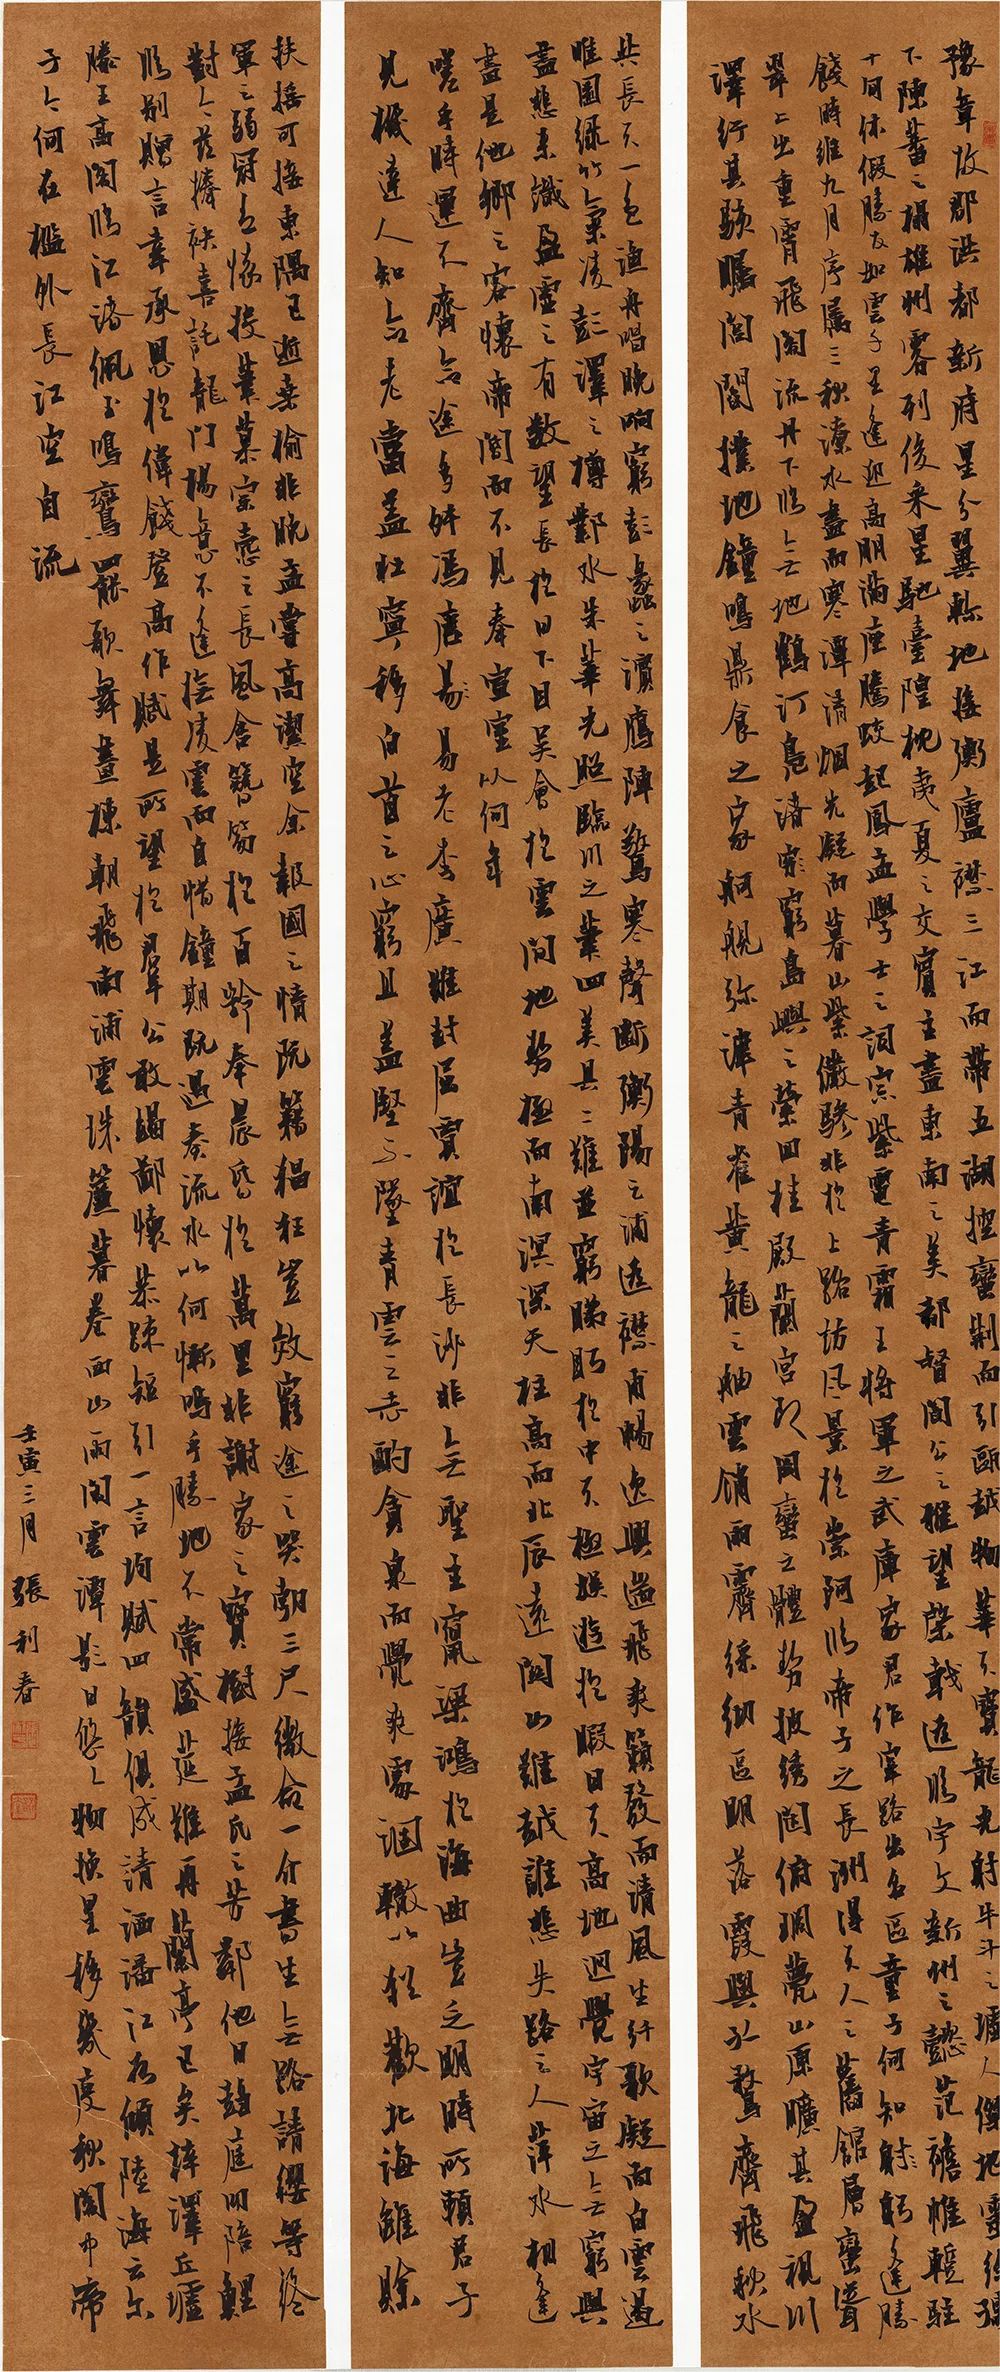 豫章故郡洪都新府星分翼軫地接衡廬襟三江而帶五湖控蠻荊而引甌越物華天寶龍光射牛斗之墟人傑地靈徐孺
下陳蕃之榻雄州霧列俊采星馳臺隍枕夷夏之交賓主盡東南之美都督閻公之雅望棨戟遙臨宇文新州之懿范襜帷暫駐
十旬休假勝友如雲千里逢迎高朋滿座騰蛟起鳳孟學士之詞宗紫電青霜王將軍之武庫家君作宰路出名區童子何知射躬逢勝
餞時維九月序屬三秋潦水盡而寒潭清烟光凝而暮山紫儼驂騑於上路訪風景於崇阿臨帝子之長洲得天人之舊館層巒聳
翠上出重霄飛閣流丹下臨無地鶴汀鳧渚窮島嶼之縈回桂殿蘭宮列岡巒之體勢披繡闥俯雕甍山原曠其盈視川
澤紆其駭矚閭閻撲地鐘鳴鼎食之家舸艦弥津青雀黃龍之舳雲銷雨霽彩徹區明落霞與孤鶩齊飛秋水
共長天一色漁舟唱晚響窮彭蠡之濱雁陣驚寒聲斷衡陽之浦遙襟甫暢逸興遄飛爽籟發而清風生纖歌凝而白雲遏
睢園綠竹氣凌彭澤之樽鄴水朱華光照臨川之筆四美具二難並窮睇眄於中天極娛遊於暇日天高地迥覺宇宙之無窮興
盡悲來識盈虛之有數望長於日下目吳會於雲間地勢極而南溟深天柱高而北辰遠關山難越誰悲失路之人萍水相逢
盡是他鄉之客懷帝閽而不見奉宣室以何年
嗟乎時運不齊命途多舛馮唐易易老李廣難封屈賈誼於長沙非無聖主竄梁鴻於海曲豈乏明時所賴君子
見機達人知命老當益壯寧移白首之心窮且益堅不墜青雲之志酌貪泉而覺爽處涸轍以猶歡北海雖賒
扶搖可接東隅已逝桑榆非晚孟嘗高潔空余報國之情阮籍猖狂豈效窮途之哭勃三尺微命一介書生無路請纓等終
軍之弱冠有懷投筆慕宗愨之長風舍簪笏於百齡奉晨昏於萬里非謝家之寶樹接孟氏之芳鄰他日趨庭叨陪鯉
對今茲捧袂喜託龍門楊意不逢撫凌雲而自惜鐘期既遇奏流水以何慚嗚乎勝地不常盛筵難再蘭亭已矣梓澤丘墟
臨別贈言幸承恩於偉餞登高作賦是所望於群公敢竭鄙懷恭疏短引一言均賦四韻俱成請洒潘江各傾陸海云爾
滕王高閣臨江渚佩玉鳴鸞罷歌舞畫棟朝飛南浦雲珠簾暮卷西山雨閑雲潭影日悠悠物換星移幾度秋閣中帝
子今何在檻外長江空自流
壬寅三月張利春